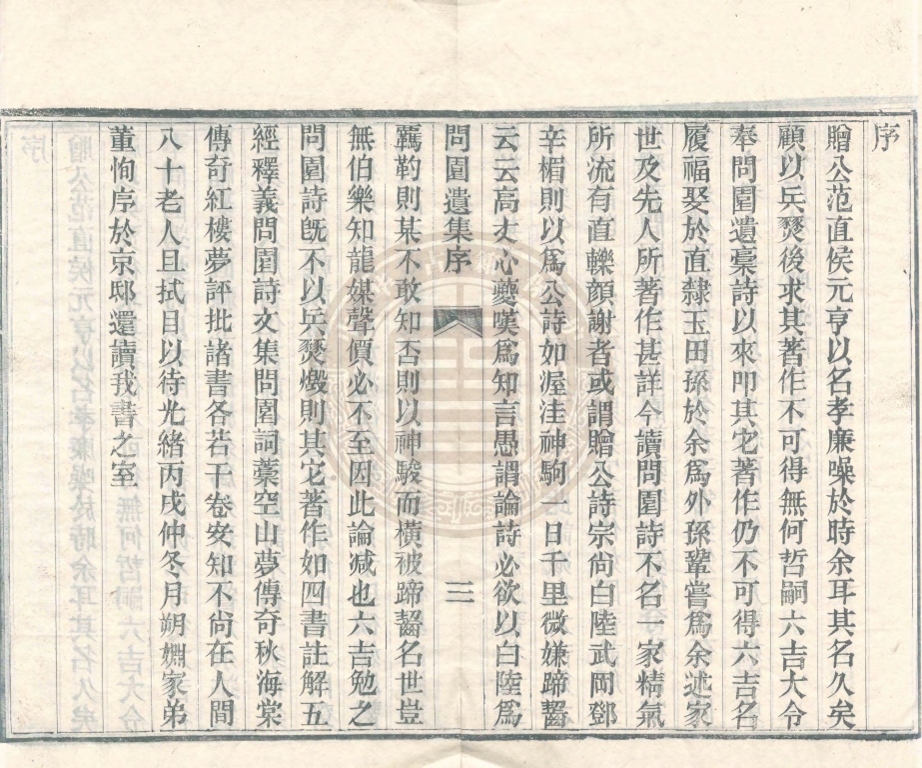 序
贈公范直侯元亨以名孝廉噪於時余耳其名久矣
顧以兵燹後求其著作不可得無何哲嗣六吉大令
奉問園遺稾詩以來叩其它著作仍不可得六吉名
履福娶於直隸玉田孫於余爲外孫鞏嘗爲余述家
世及先人所著作甚詳今讀問園詩不名一家精氣
所流有直轢顔謝者或謂贈公詩宗尙白陸武岡鄧
辛楣則以爲公詩如渥洼神駒一日千里微嫌蹄齧
云云高才心夔嘆爲知言愚謂論詩必欲以白陸爲
問園遺集序 三
羈靮則某不敢知否則以神駿而橫被蹄齧名世豈
無伯樂知龍媒聲價必不至因此論减也六吉勉之
問園詩旣不以兵燹燬則其它著作如四書註解五
經釋義問園詩文集問園詞藁空山夢傳奇秋海棠
傳奇紅樓夢評批諸書各若干卷安知不尙在人間
八十老人且拭目以待光緒丙戌仲冬月朔姻家弟
董恂序於京邸還讀我書之室